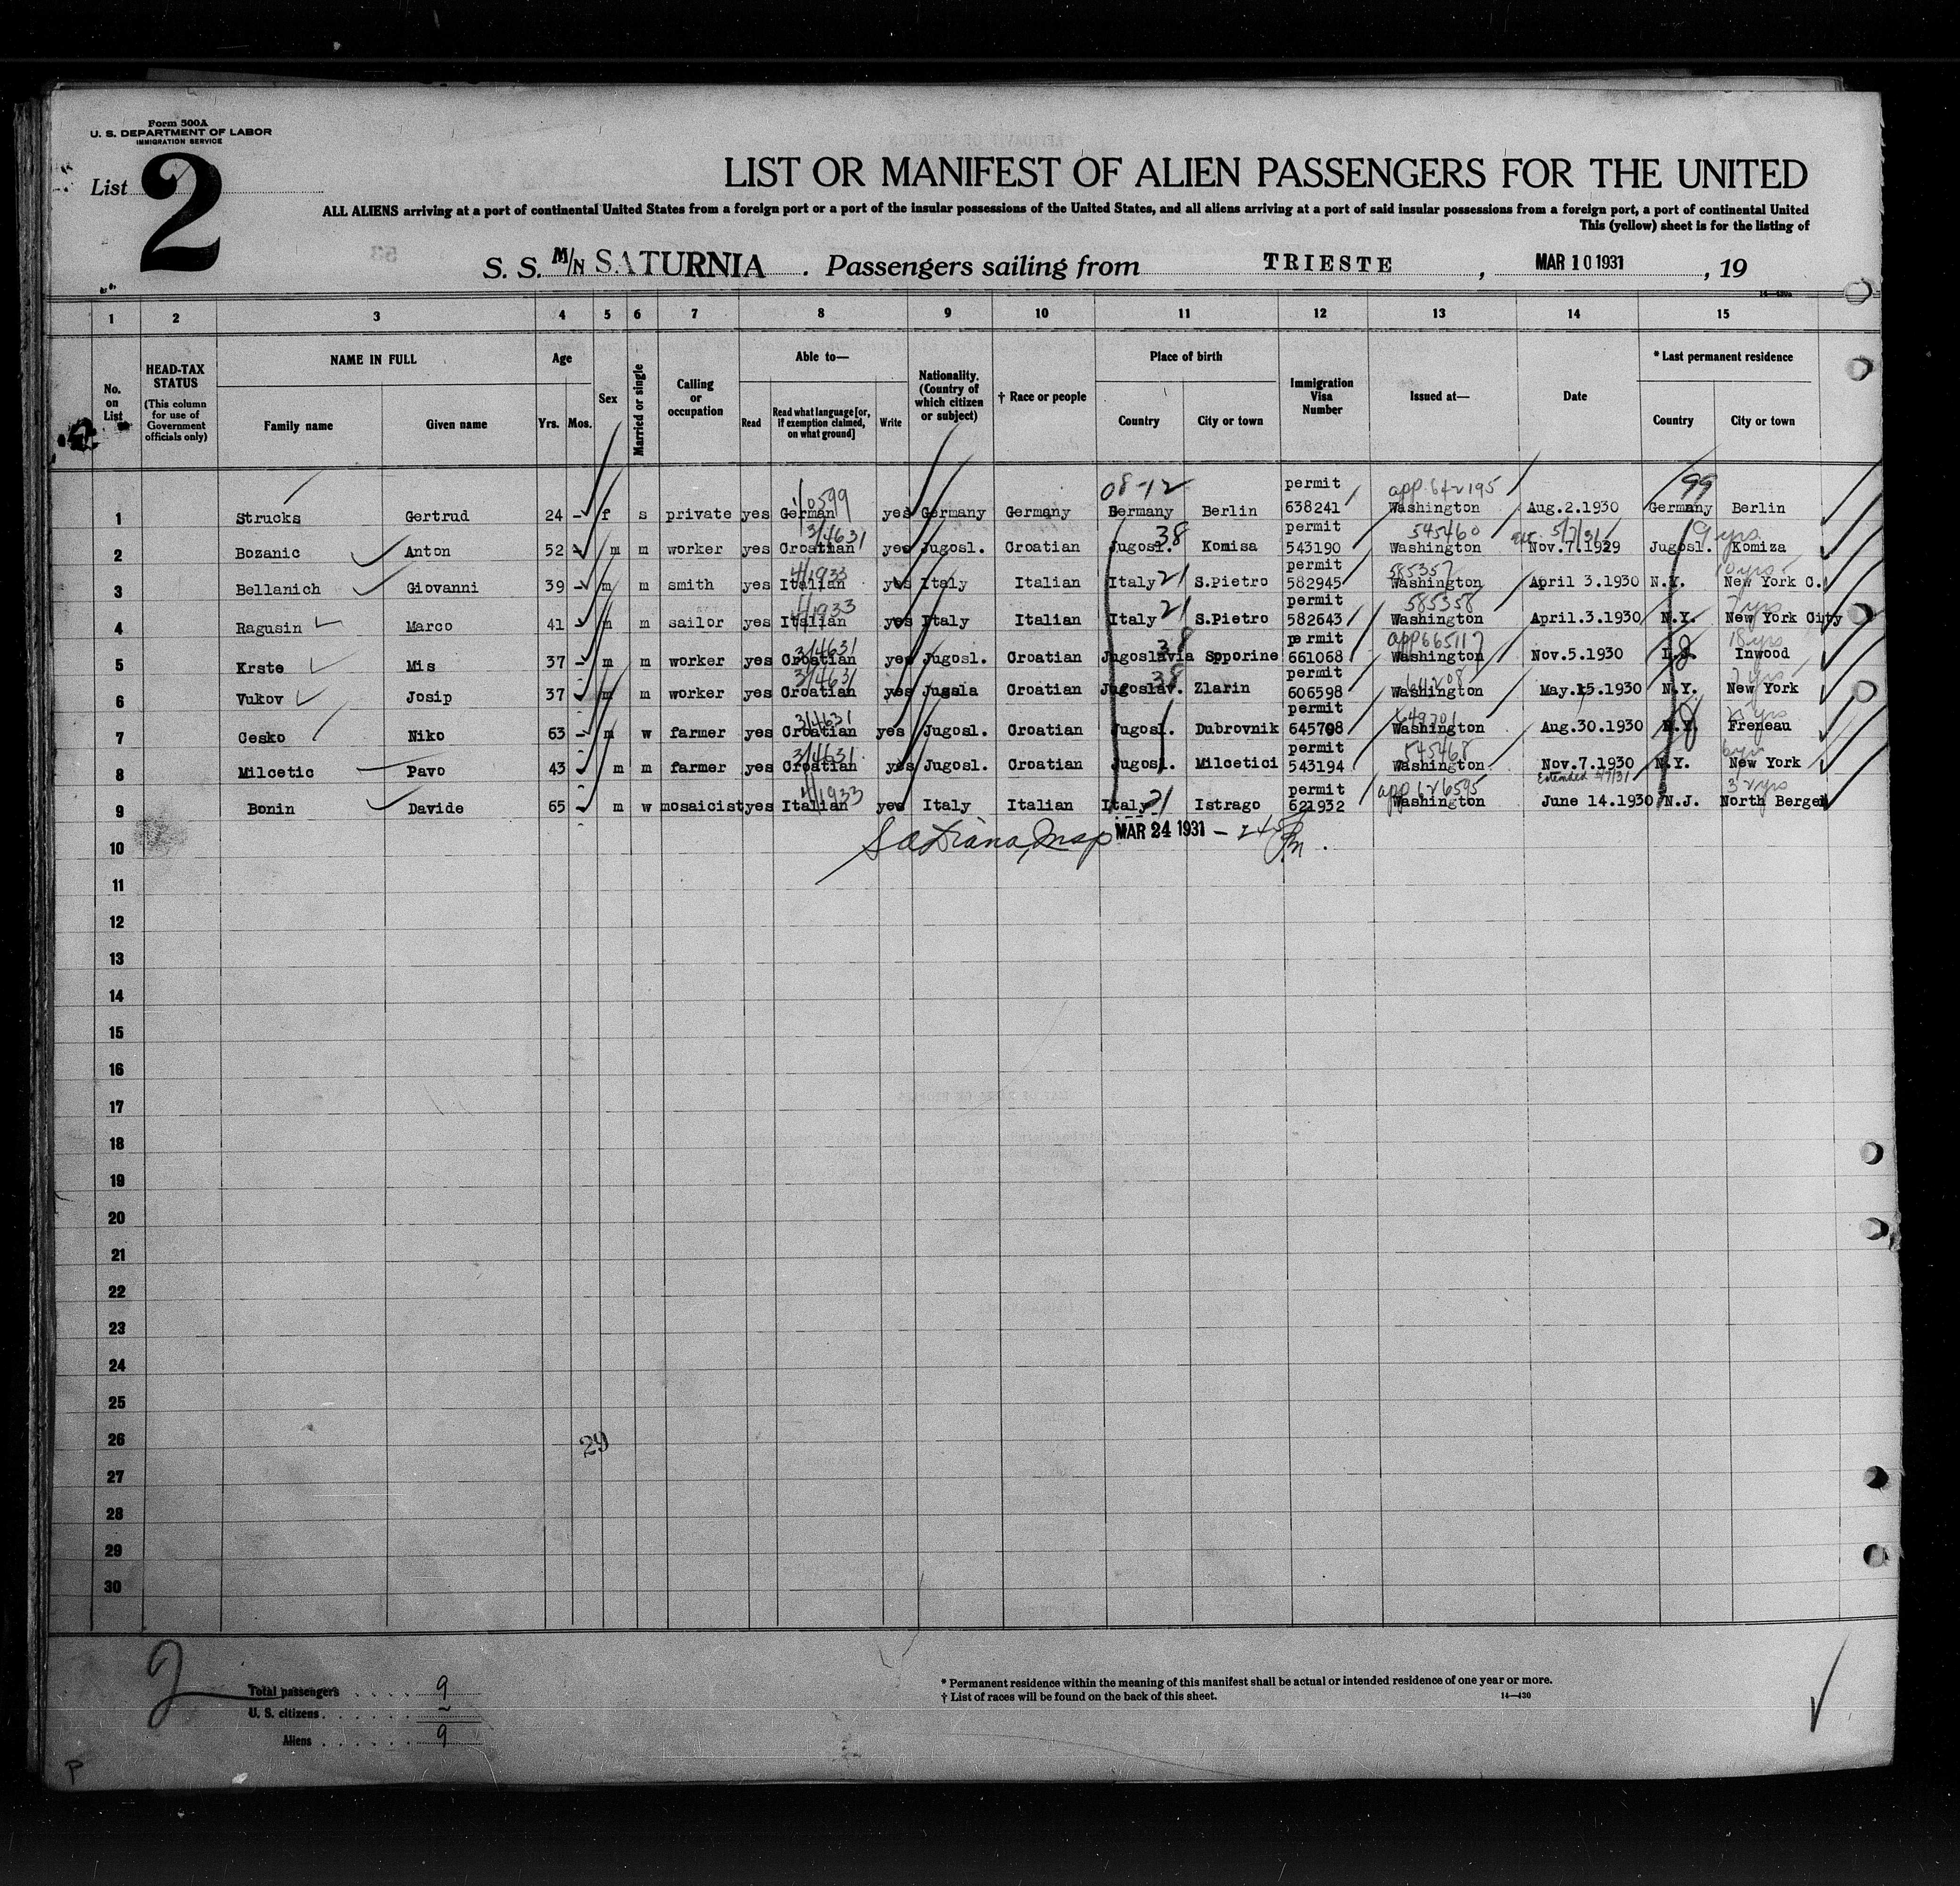 Form 500A
U. S. DEPARTMENT OF LABOR
IMMIGRATION SERVICE
List 2
LIST OR MANIFEST OF ALIEN PASSENGERS FOR THE UNITED
ALL ALIENS arriving at a port of continental United States from a foreign port or a port of the insular possessions of the United States, and all aliens arriving at a port of said insular possessions from a foreign port, a port of continental United
This (yellow) sheet is for the listing of
S. S. M/N SATURNIA . Passengers sailing from TRIESTE , MAR 10 1931 , 19
1 2 3 4 5 6 7 8 9 10 11 12 13 14 15
No. on List
HEAD-TAX STATUS (This column for use of Government officials only)
NAME IN FULL Family name Given name
Age Yrs. Mos.
Sex
Married or single
Calling or occupation
Able to— Read Read what language [or, if exemption claimed, on what ground] Write
Nationality. (Country of which citizen or subject)
† Race or people
Place of birth Country City or town
Immigration Visa Number
Issued at—
Date
* Last permanent residence Country City or town
08-12 permit app. 642195 99
1 Strucks Gertrud 24 - f s private yes German yes Germany Germany Germany Berlin 638241 Washington Aug.2.1930 Germany Berlin
3/4631 38 permit 545460 5/7/31 9 yrs
2 Bozanic Anton 52 - m m worker yes Croathan yes Jugosl. Croatian Jugosl. Komisa 543190 Washington Nov.7.1929 Jugosl. Komiza
4/1933 21 permit 585357 10 yrs
3 Bellanich Giovanni 39 - m m smith yes Italian yes Italy Italian Italy S.Pietro 582945 Washington April 3.1930 N.Y. New York C.
4/1933 21 permit 585358 7 yrs
4 Ragusin Marco 41 - m m sailor yes Italian yes Italy Italian Italy S.Pietro 582643 Washington April.3.1930 N.Y. New York City
3/4631 38 permit app 665117 18 yrs
5 Krste Mis 37 - m m worker yes Croatian yes Jugosl. Croatian Jugoslavia Spporine 661068 Washington Nov.5.1930 Inwood
3/4631 38 permit 7 yrs
6 Vukov Josip 37 - m m worker yes Croatian yes Jugsla Croatian Jugoslav. Zlarin 606598 Washington May.15.1930 N.Y. New York
3/4631 permit 649701
7 Cesko Niko 63 - m w farmer yes Croatian yes Jugosl. Croatian Jugosl. Dubrovnik 645708 Washington Aug.30.1930 N.Y. Freneau
3/4631 permit 545468
8 Milcetic Pavo 43 m m farmer yes Croatian yes Jugosl. Croatian Jugosl. Milcetici 543194 Washington Nov.7.1930 N.Y. New York
4/1933 21 permit app 626595 Extended 5/7/31 32 yrs
9 Bonin Davide 65 - m w mosaicist yes Italian yes Italy Italian Italy Istrago 621932 Washington June 14.1930 N.J. North Bergen
10 MAR 24 1931
11
12
13
14
15
16
17
18
19
20
21
22
23
24
25
26 29
27
28
29
30
2
Total passengers . . . . 9
U. S. citizens . . . . . . –
Aliens . . . . . . 9
* Permanent residence within the meaning of this manifest shall be actual or intended residence of one year or more.
† List of races will be found on the back of this sheet. 14—430
P